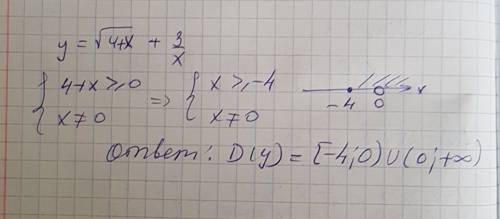 y = √4+x + 3/x
{ 4+x ≥ 0 => { x ≥ -4
{ x ≠ 0 { x ≠ 0
-4 0 x
Ответ: D(y) = [-4; 0) ∪ (0; +∞)